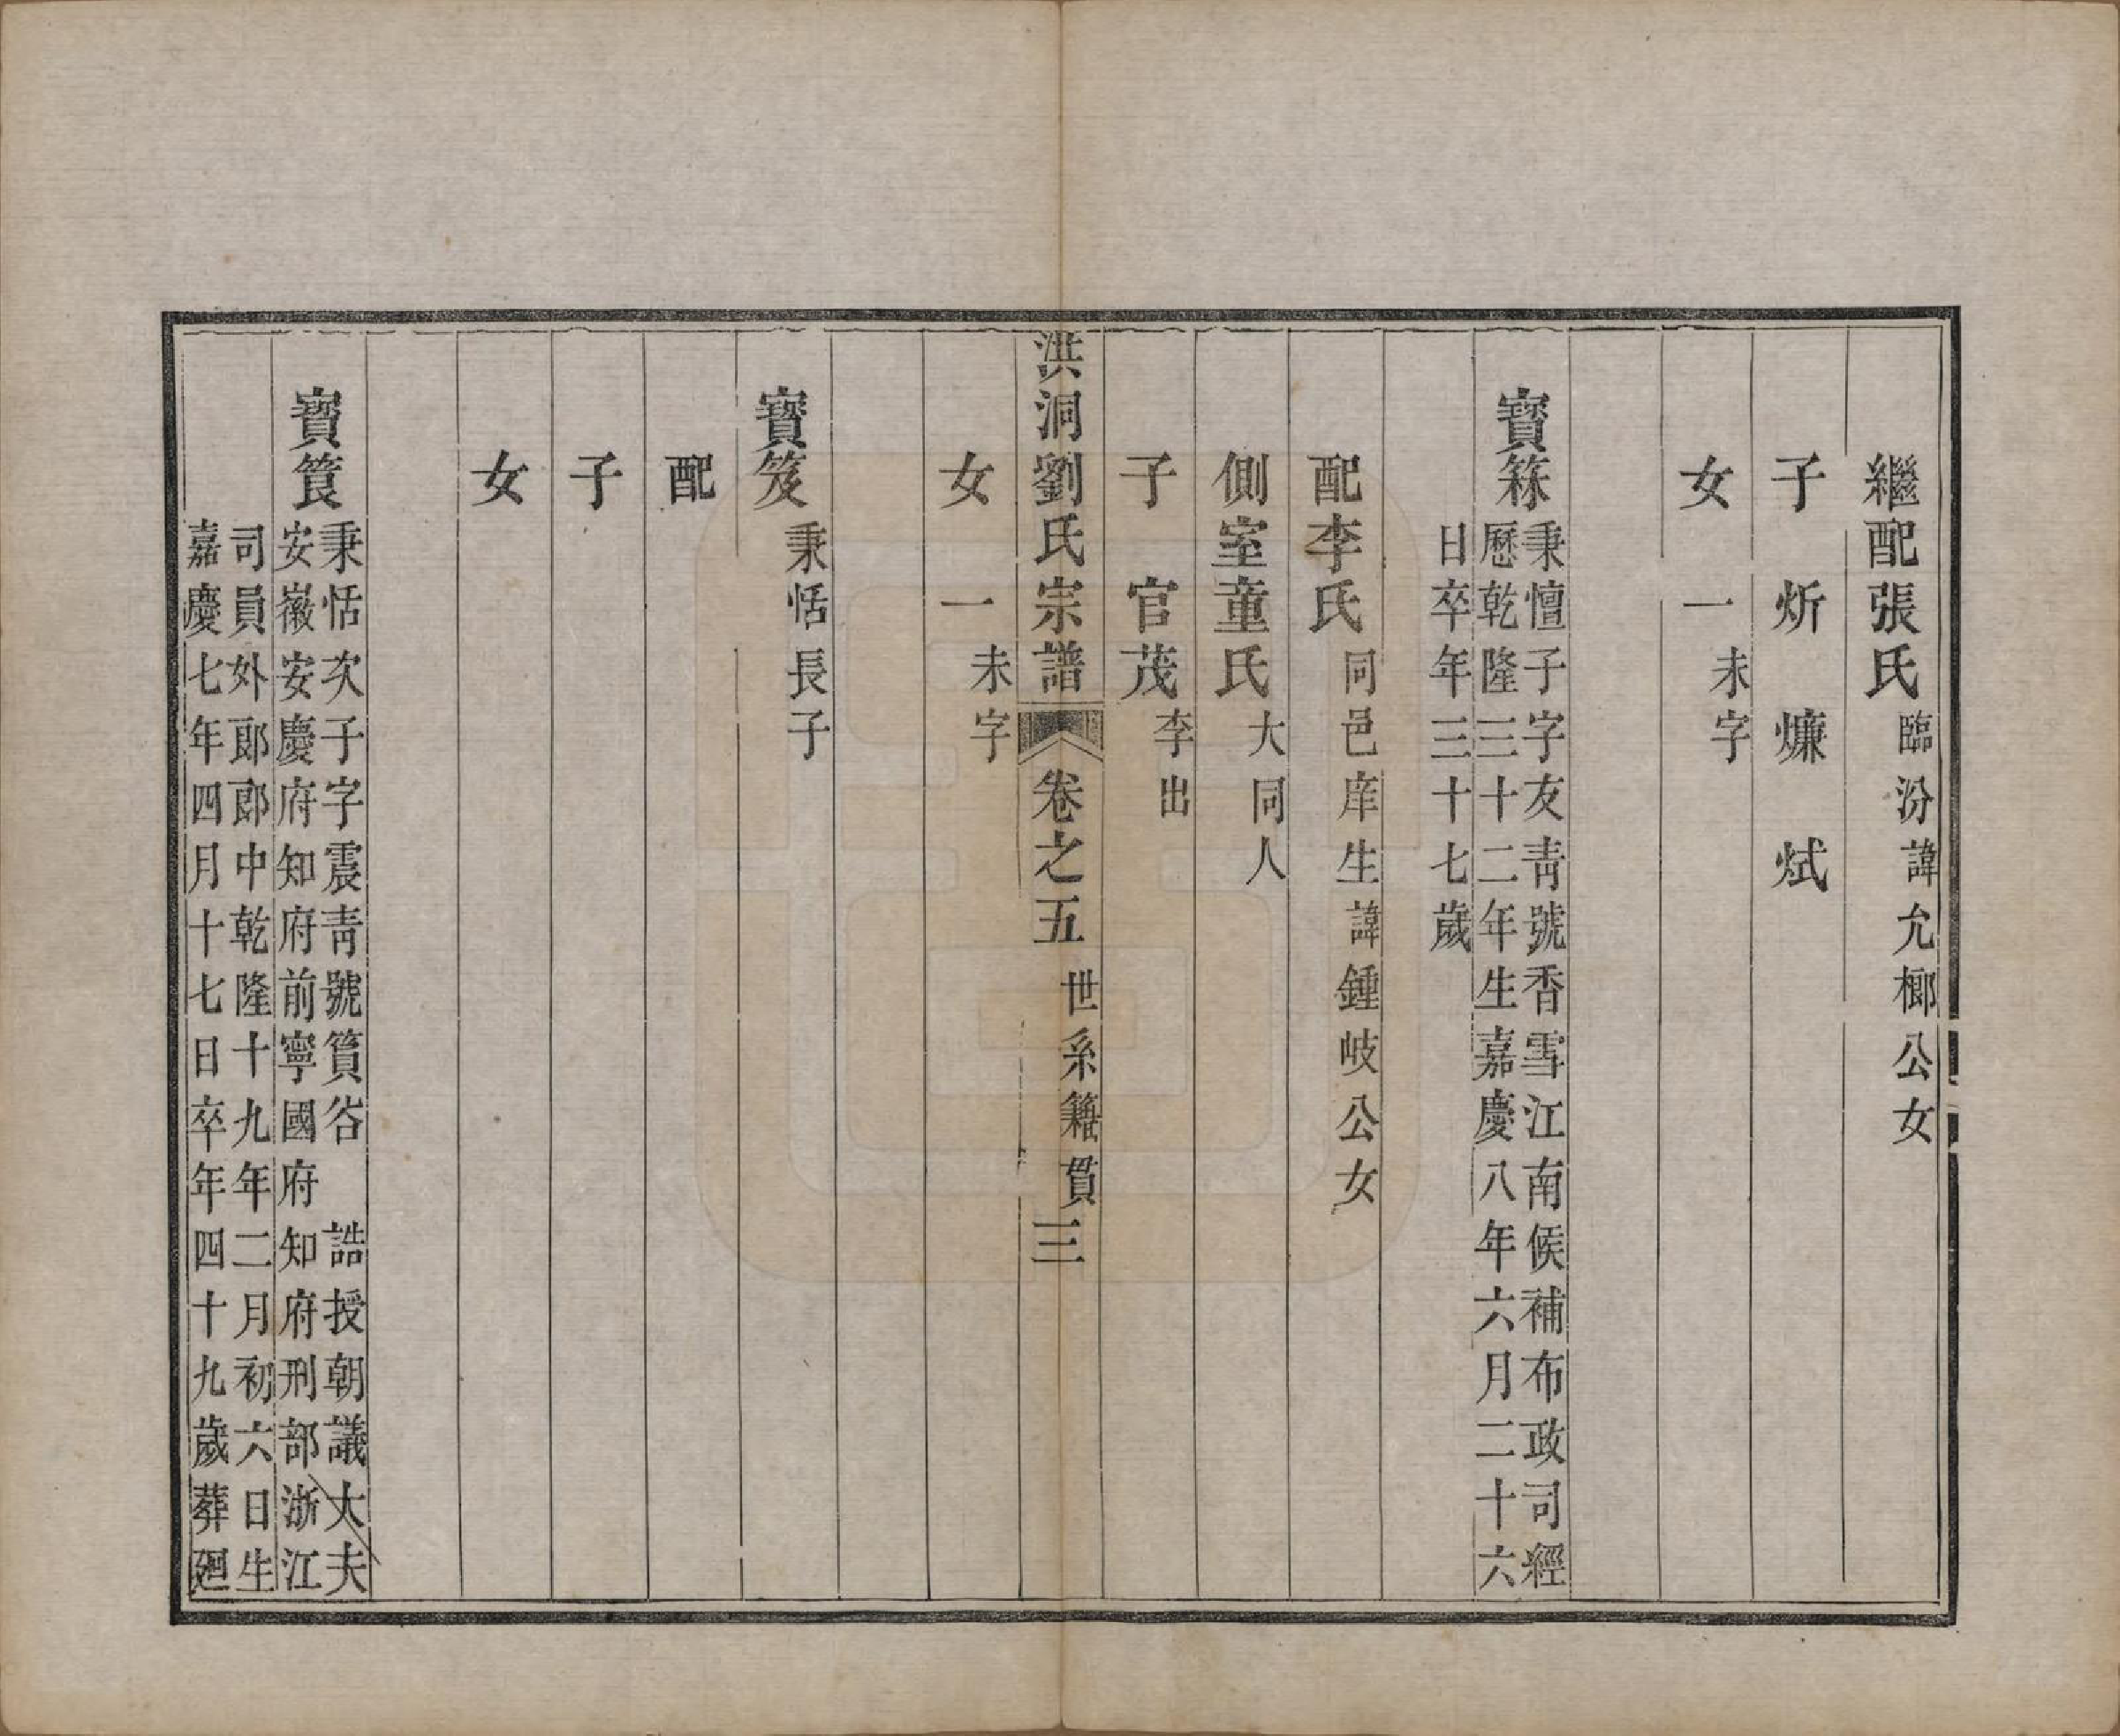 繼配張氏臨汾諱允榔公女
子炘㷰烒
女一未字
寶箖秉憻子字友靑號香雪江南候補布政司經
歷乾隆三十二年生嘉慶八年六月二十六
日卒年三十七歲
配李氏同邑庠生諱鍾岐公女
側室童氏大同人
子官茂李出
女一未字
洪洞劉氏宗譜卷之五世系籍貫三
寶笈秉恬長子
配
子
女
寶筤秉恬次子字震靑號篔谷誥授朝議大夫
安徽安慶府知府前寧國府知府刑部浙江
司員外郎郎中乾隆十九年二月初六日生
嘉慶七年四月十七日卒年四十九歲葬廻